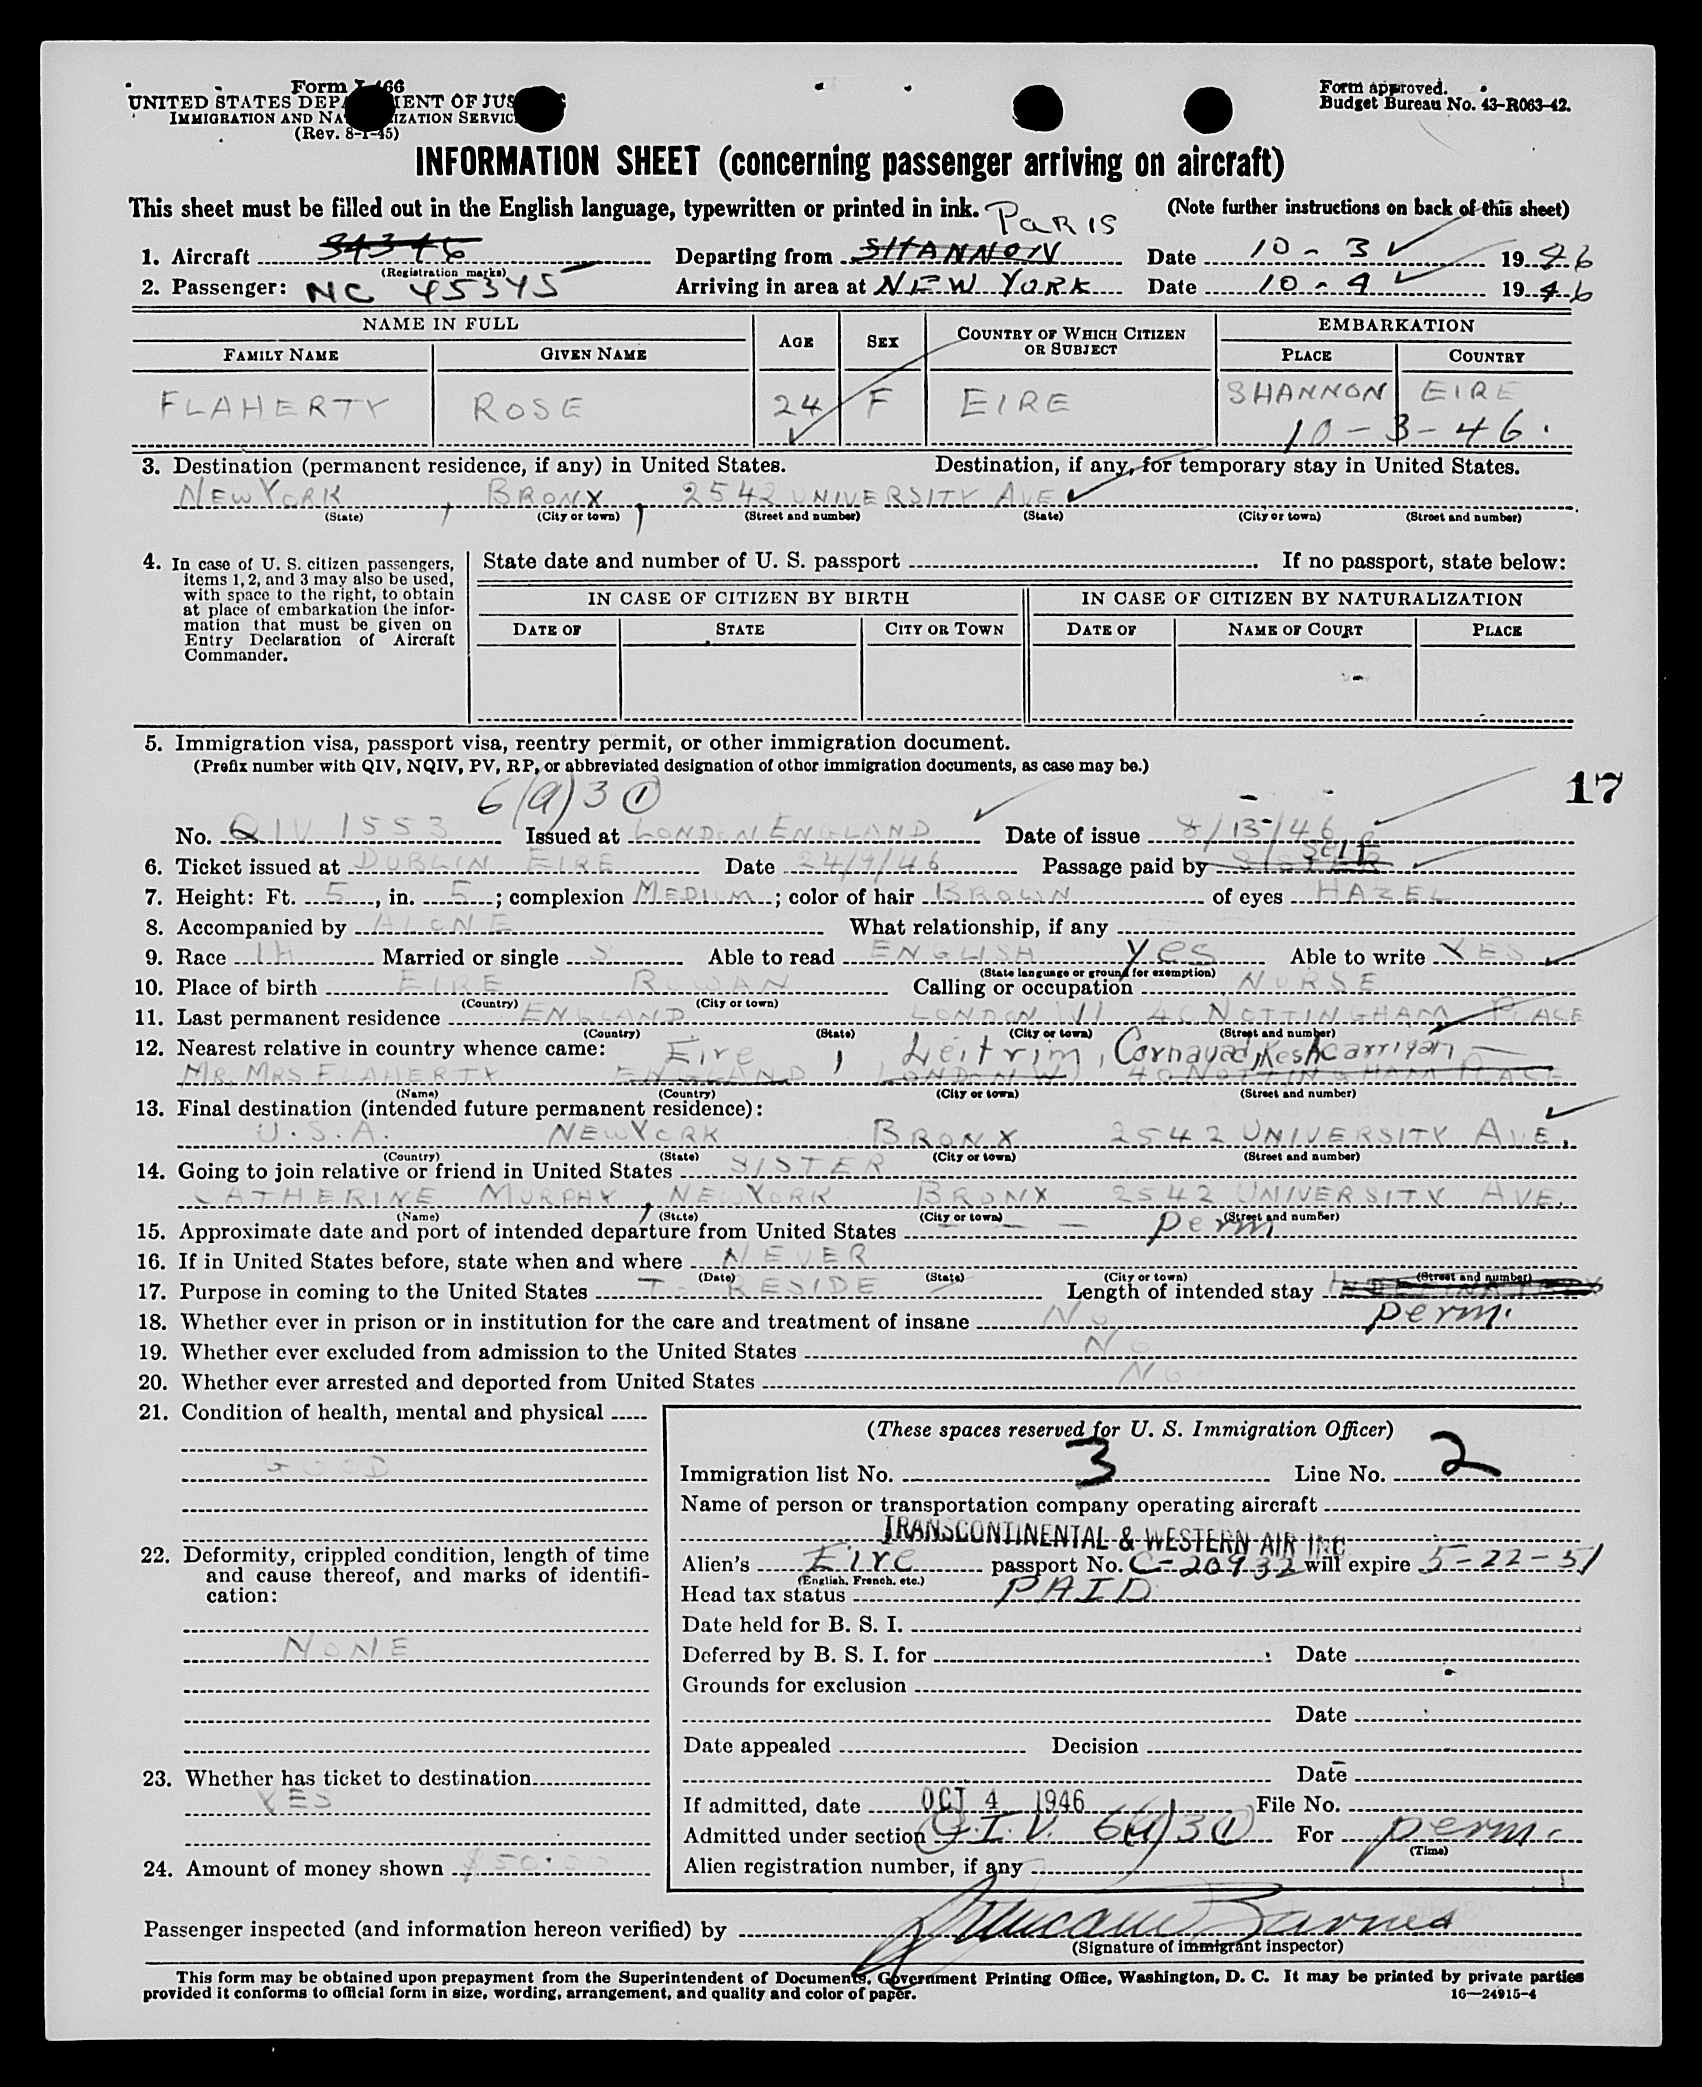 Form I-466
UNITED STATES DEPARTMENT OF JUSTICE
IMMIGRATION AND NATURALIZATION SERVICE
(Rev. 8-1-45)
Form approved.
Budget Bureau No. 43-R063-42.
INFORMATION SHEET (concerning passenger arriving on aircraft)
This sheet must be filled out in the English language, typewritten or printed in ink. (Note further instructions on back of this sheet)
PARIS
1. Aircraft 34346 Departing from SHANNON Date 10-3 1946
(Registration marks)
2. Passenger: NC 45345 Arriving in area at NEW YORK Date 10-4 1946
NAME IN FULL AGE SEX COUNTRY OF WHICH CITIZEN OR SUBJECT EMBARKATION
FAMILY NAME GIVEN NAME PLACE COUNTRY
FLAHERTY ROSE 24 F EIRE SHANNON EIRE
10-3-46.
3. Destination (permanent residence, if any) in United States. Destination, if any, for temporary stay in United States.
NEW YORK, BRONX, 2542 UNIVERSITY AVE
(State) (City or town) (Street and number) (State) (City or town) (Street and number)
4. In case of U. S. citizen passengers, items 1, 2, and 3 may also be used, with space to the right, to obtain at place of embarkation the information that must be given on Entry Declaration of Aircraft Commander.
State date and number of U. S. passport If no passport, state below:
IN CASE OF CITIZEN BY BIRTH IN CASE OF CITIZEN BY NATURALIZATION
DATE OF STATE CITY OR TOWN DATE OF NAME OF COURT PLACE
5. Immigration visa, passport visa, reentry permit, or other immigration document.
(Prefix number with QIV, NQIV, PV, RP, or abbreviated designation of other immigration documents, as case may be.)
6(a)3 (1)
17
No. QIV 1553 Issued at LONDON ENGLAND Date of issue 8/13/46
6. Ticket issued at DUBLIN EIRE Date 24/9/46 Passage paid by SISTER self
7. Height: Ft. 5, in. 5; complexion MEDIUM; color of hair BROWN of eyes HAZEL
8. Accompanied by ALONE What relationship, if any
9. Race IH Married or single S Able to read ENGLISH Yes Able to write YES
(State language or ground for exemption)
10. Place of birth EIRE ROWAN Calling or occupation NURSE
(Country) (City or town)
11. Last permanent residence ENGLAND LONDON W1 40 NOTTINGHAM PLACE
(Country) (State) (City or town) (Street and number)
12. Nearest relative in country whence came: Eire, Leitrim, Cornavad, Keshcarrigan
MR, MRS FLAHERTY ENGLAND LONDON W1 40 NOTTINGHAM PLACE
(Name) (Country) (City or town) (Street and number)
13. Final destination (intended future permanent residence):
U.S.A. NEW YORK BRONX 2542 UNIVERSITY AVE.
(Country) (State) (City or town) (Street and number)
14. Going to join relative or friend in United States SISTER
CATHERINE MURPHY, NEW YORK BRONX 2542 UNIVERSITY AVE.
(Name) (State) (City or town) (Street and number)
15. Approximate date and port of intended departure from United States - - - perm
16. If in United States before, state when and where NEVER
(Date) (State) (City or town) (Street and number)
17. Purpose in coming to the United States TO RESIDE Length of intended stay perm.
18. Whether ever in prison or in institution for the care and treatment of insane No
19. Whether ever excluded from admission to the United States No
20. Whether ever arrested and deported from United States No
21. Condition of health, mental and physical
GOOD
22. Deformity, crippled condition, length of time and cause thereof, and marks of identification:
NONE
23. Whether has ticket to destination
YES
24. Amount of money shown $50.00
(These spaces reserved for U. S. Immigration Officer)
Immigration list No. 3 Line No. 2
Name of person or transportation company operating aircraft
TRANSCONTINENTAL & WESTERN AIR INC
Alien's Eire passport No. C-20932 will expire 5-22-51
(English, French, etc.)
Head tax status PAID
Date held for B. S. I.
Deferred by B. S. I. for Date
Grounds for exclusion
Date
Date appealed Decision
Date
If admitted, date OCT 4 1946 File No.
Admitted under section Q.I.V. 6(a)3(1) For perm.
(Time)
Alien registration number, if any
Passenger inspected (and information hereon verified) by
(Signature of immigrant inspector)
This form may be obtained upon prepayment from the Superintendent of Documents, Government Printing Office, Washington, D. C. It may be printed by private parties
provided it conforms to official form in size, wording, arrangement, and quality and color of paper. 16—24915-4